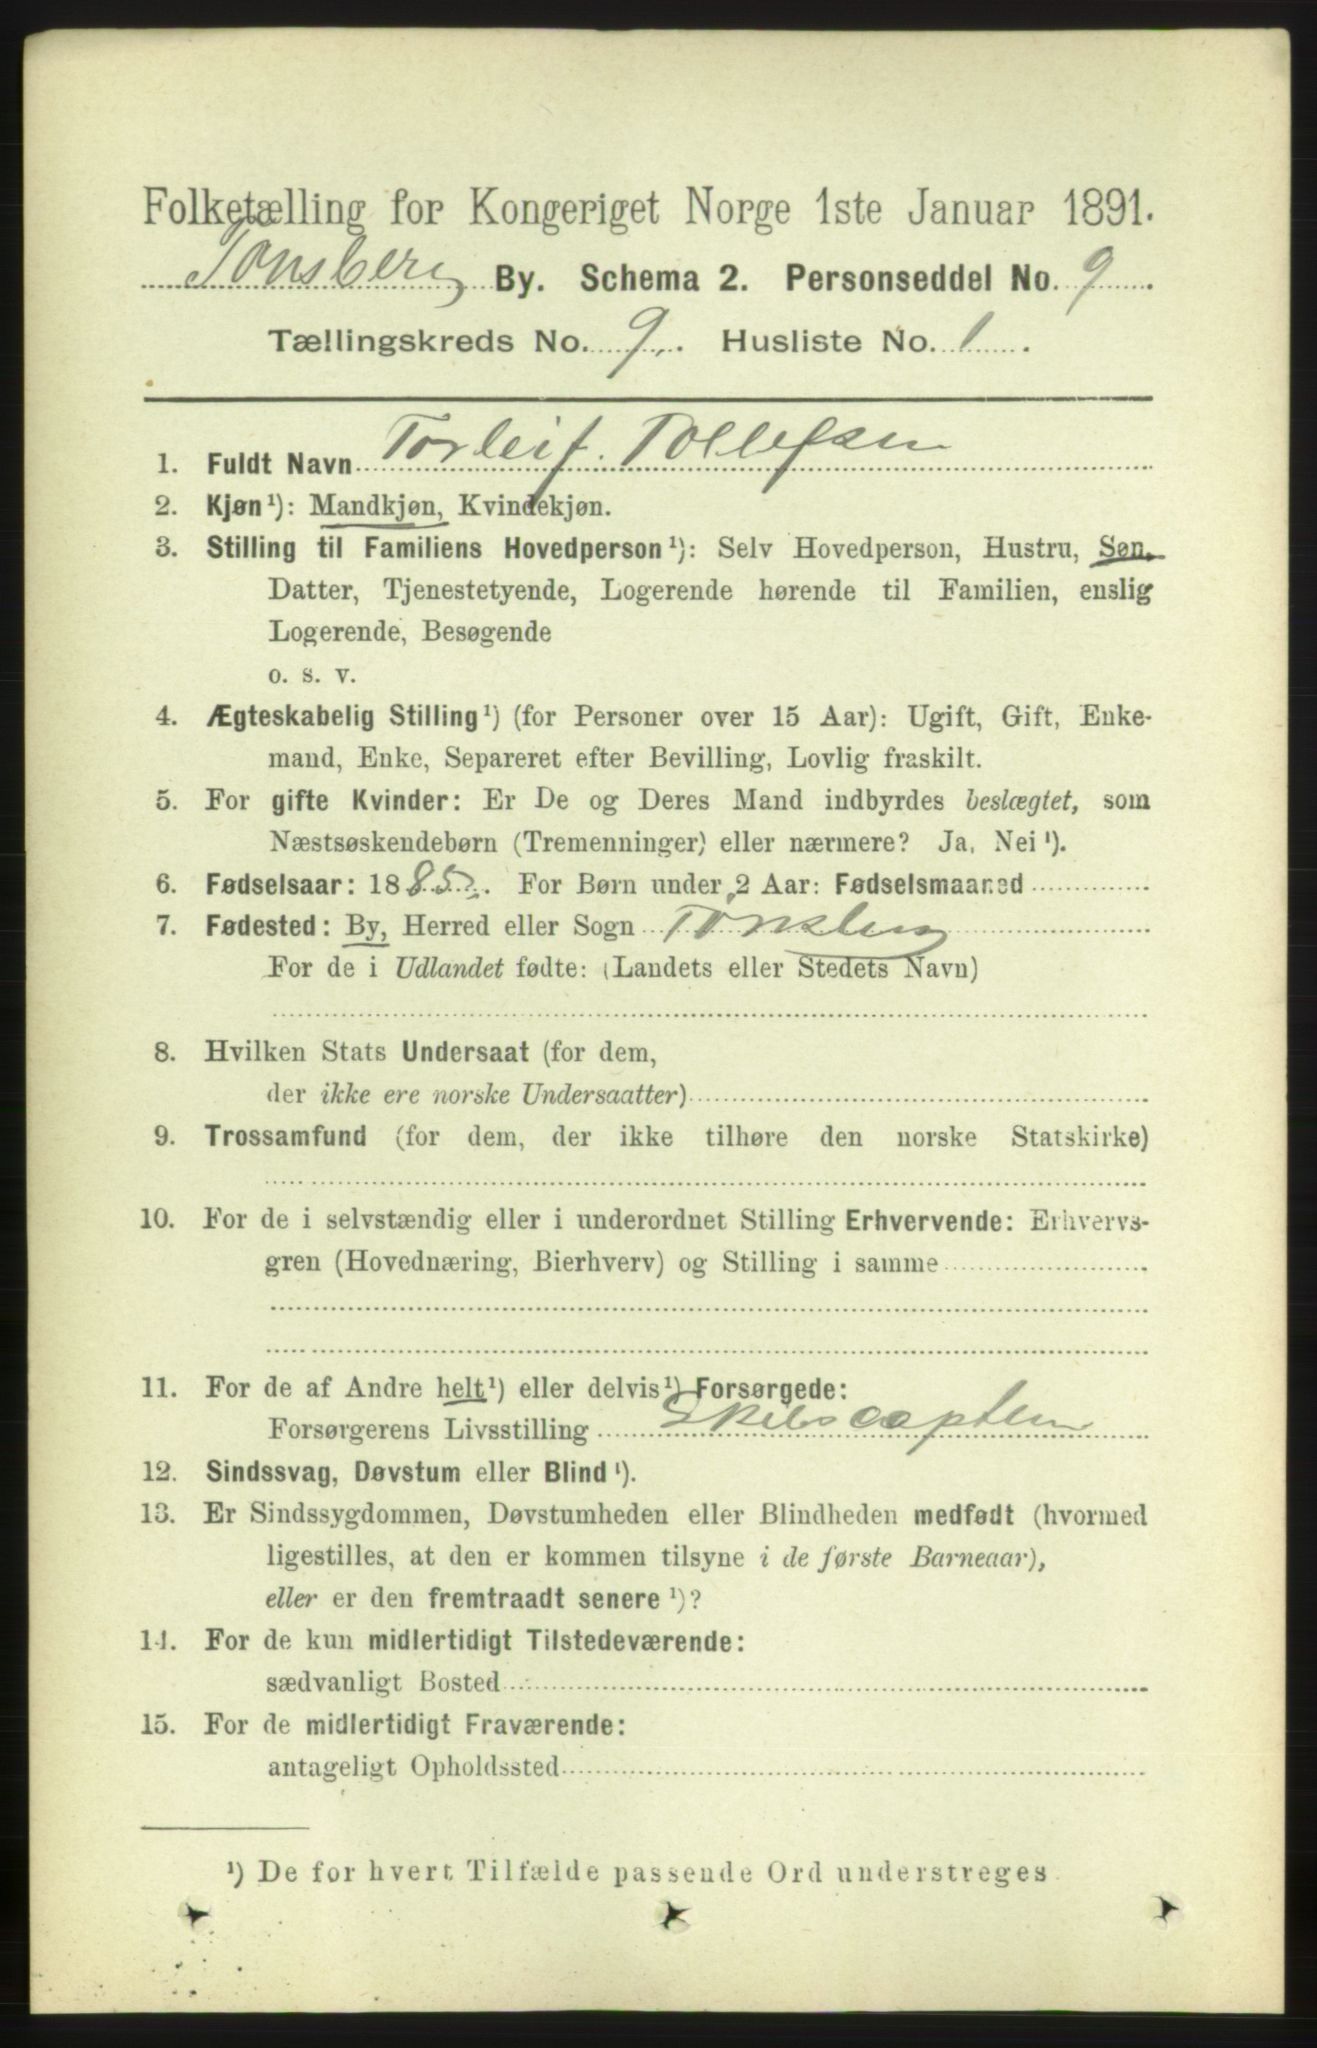 Folketælling for Kongeriget Norge 1ste Januar 1891.
Tønsberg By. Schema 2. Personseddel No. 9
Tællingskreds No. 9. Husliste No. 1
1. Fuldt Navn Torleif. Tollefsen
2. Kjøn¹): Mandkjøn, Kvindekjøn.
3. Stilling til Familiens Hovedperson¹): Selv Hovedperson, Hustru, Søn,
Datter, Tjenestetyende, Logerende hørende til Familien, enslig
Logerende, Besøgende
o. s. v.
4. Ægteskabelig Stilling¹) (for Personer over 15 Aar): Ugift, Gift, Enke-
mand, Enke, Separeret efter Bevilling, Lovlig fraskilt.
5. For gifte Kvinder: Er De og Deres Mand indbyrdes beslægtet, som
Næstsøskendebørn (Tremenninger) eller nærmere? Ja, Nei¹).
6. Fødselsaar: 1885. For Børn under 2 Aar: Fødselsmaaned
7. Fødested: By, Herred eller Sogn Tönsberg
For de i Udlandet fødte: (Landets eller Stedets Navn)
8. Hvilken Stats Undersaat (for dem,
der ikke ere norske Undersaatter)
9. Trossamfund (for dem, der ikke tilhøre den norske Statskirke)
10. For de i selvstændig eller i underordnet Stilling Erhvervende: Erhvervs-
gren (Hovednæring, Bierhverv) og Stilling i samme
11. For de af Andre helt¹) eller delvis¹) Forsørgede:
Forsørgerens Livsstilling Skibscaptein
12. Sindssvag, Døvstum eller Blind¹).
13. Er Sindssygdommen, Døvstumheden eller Blindheden medfødt (hvormed
ligestilles, at den er kommen tilsyne i de første Barneaar),
eller er den fremtraadt senere¹)?
14. For de kun midlertidigt Tilstedeværende:
sædvanligt Bosted
15. For de midlertidigt Fraværende:
antageligt Opholdssted
¹) De for hvert Tilfælde passende Ord understreges